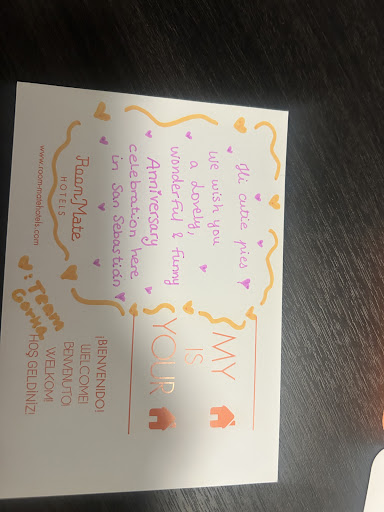 Hi cutie pies
we wish you
a lovely,
wonderful & funny
Anniversary
celebration here
in San Sebastián
Room Mate
HOTELS
www.room-matehotels.com
MY
IS
YOUR
¡BIENVENIDO!
WELCOME!
BENVENUTO!
WELKOM!
HOŞ GELDİNİZ!
: Team
Gorka